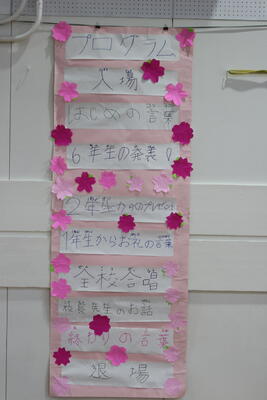 プログラム
入場
はじめの言葉
6年生の発表!
2年生からのプレゼント
1年生からお礼の言葉
全校合唱
校長先生のお話
終わりの言葉
退場